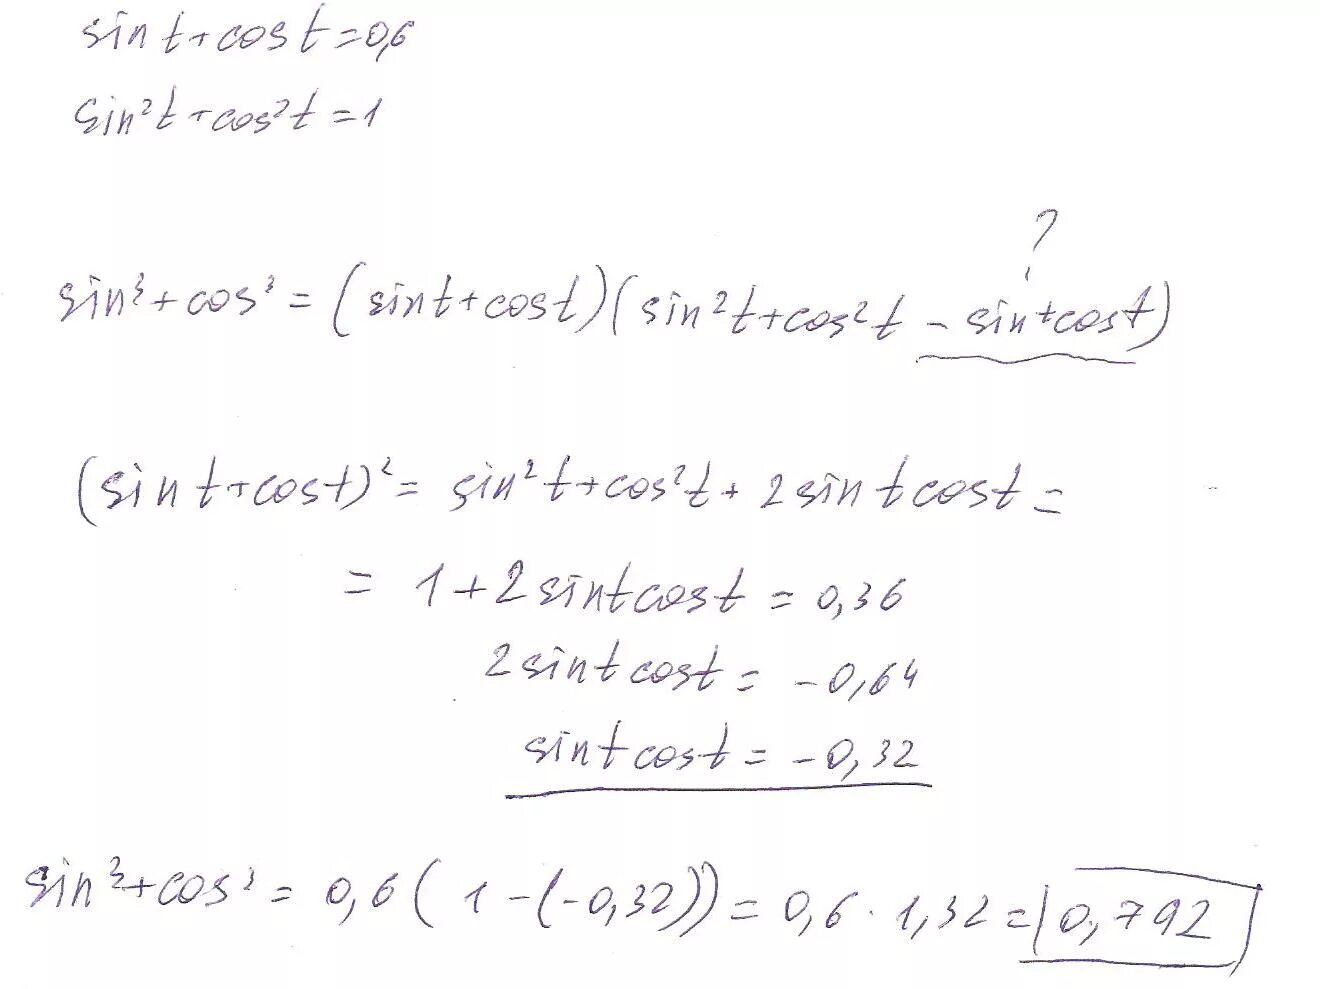 sin t + cos t = 0,6
sin²t + cos²t = 1
?
sin³ + cos³ = (sin t + cos t)(sin²t + cos²t - sin t cos t)
(sin t + cos t)² = sin²t + cos²t + 2 sin t cos t =
= 1 + 2 sin t cos t = 0,36
2 sin t cos t = -0,64
sin t cos t = -0,32
sin³ + cos³ = 0,6 ( 1 - (-0,32)) = 0,6 · 1,32 = 0,792